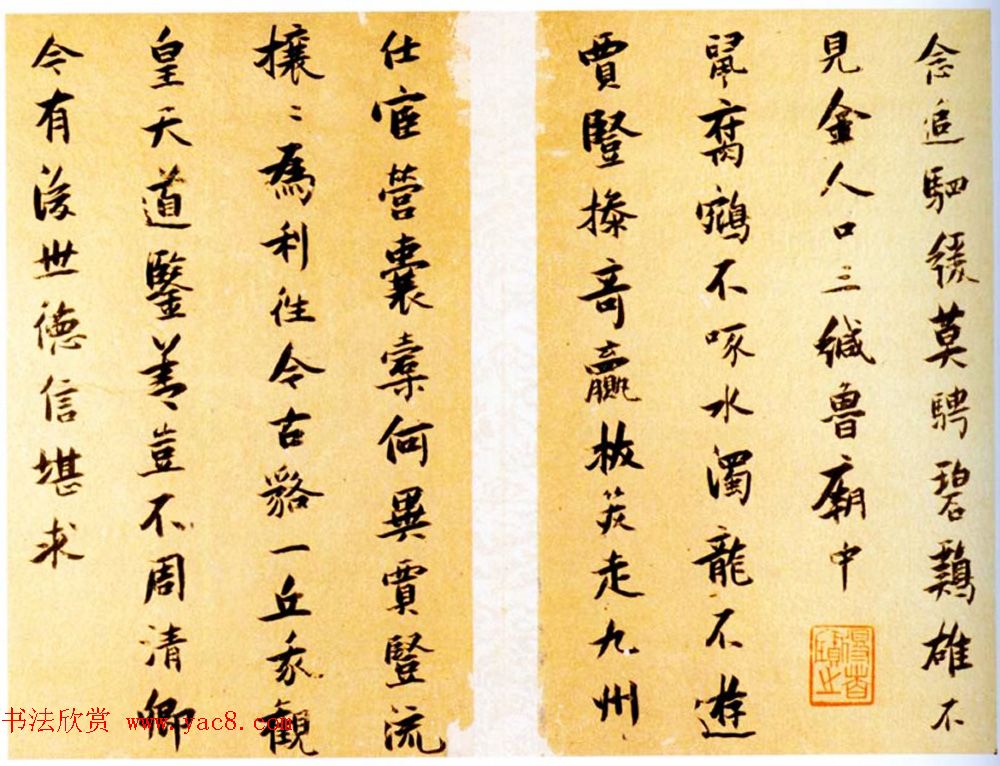 念追駟緩莫騁碧鷄雄不
見金人口三緘魯廟中
鼠腐鵷不啄水濁龍不遊
賈豎操奇贏挾筴走九州
仕宦營囊橐何異賈豎流
攘〻爲利往今古貉一丘我觀
皇天道鑒善豈不周清卿
今有後世德信堪求
书法欣赏 www.yac8.com